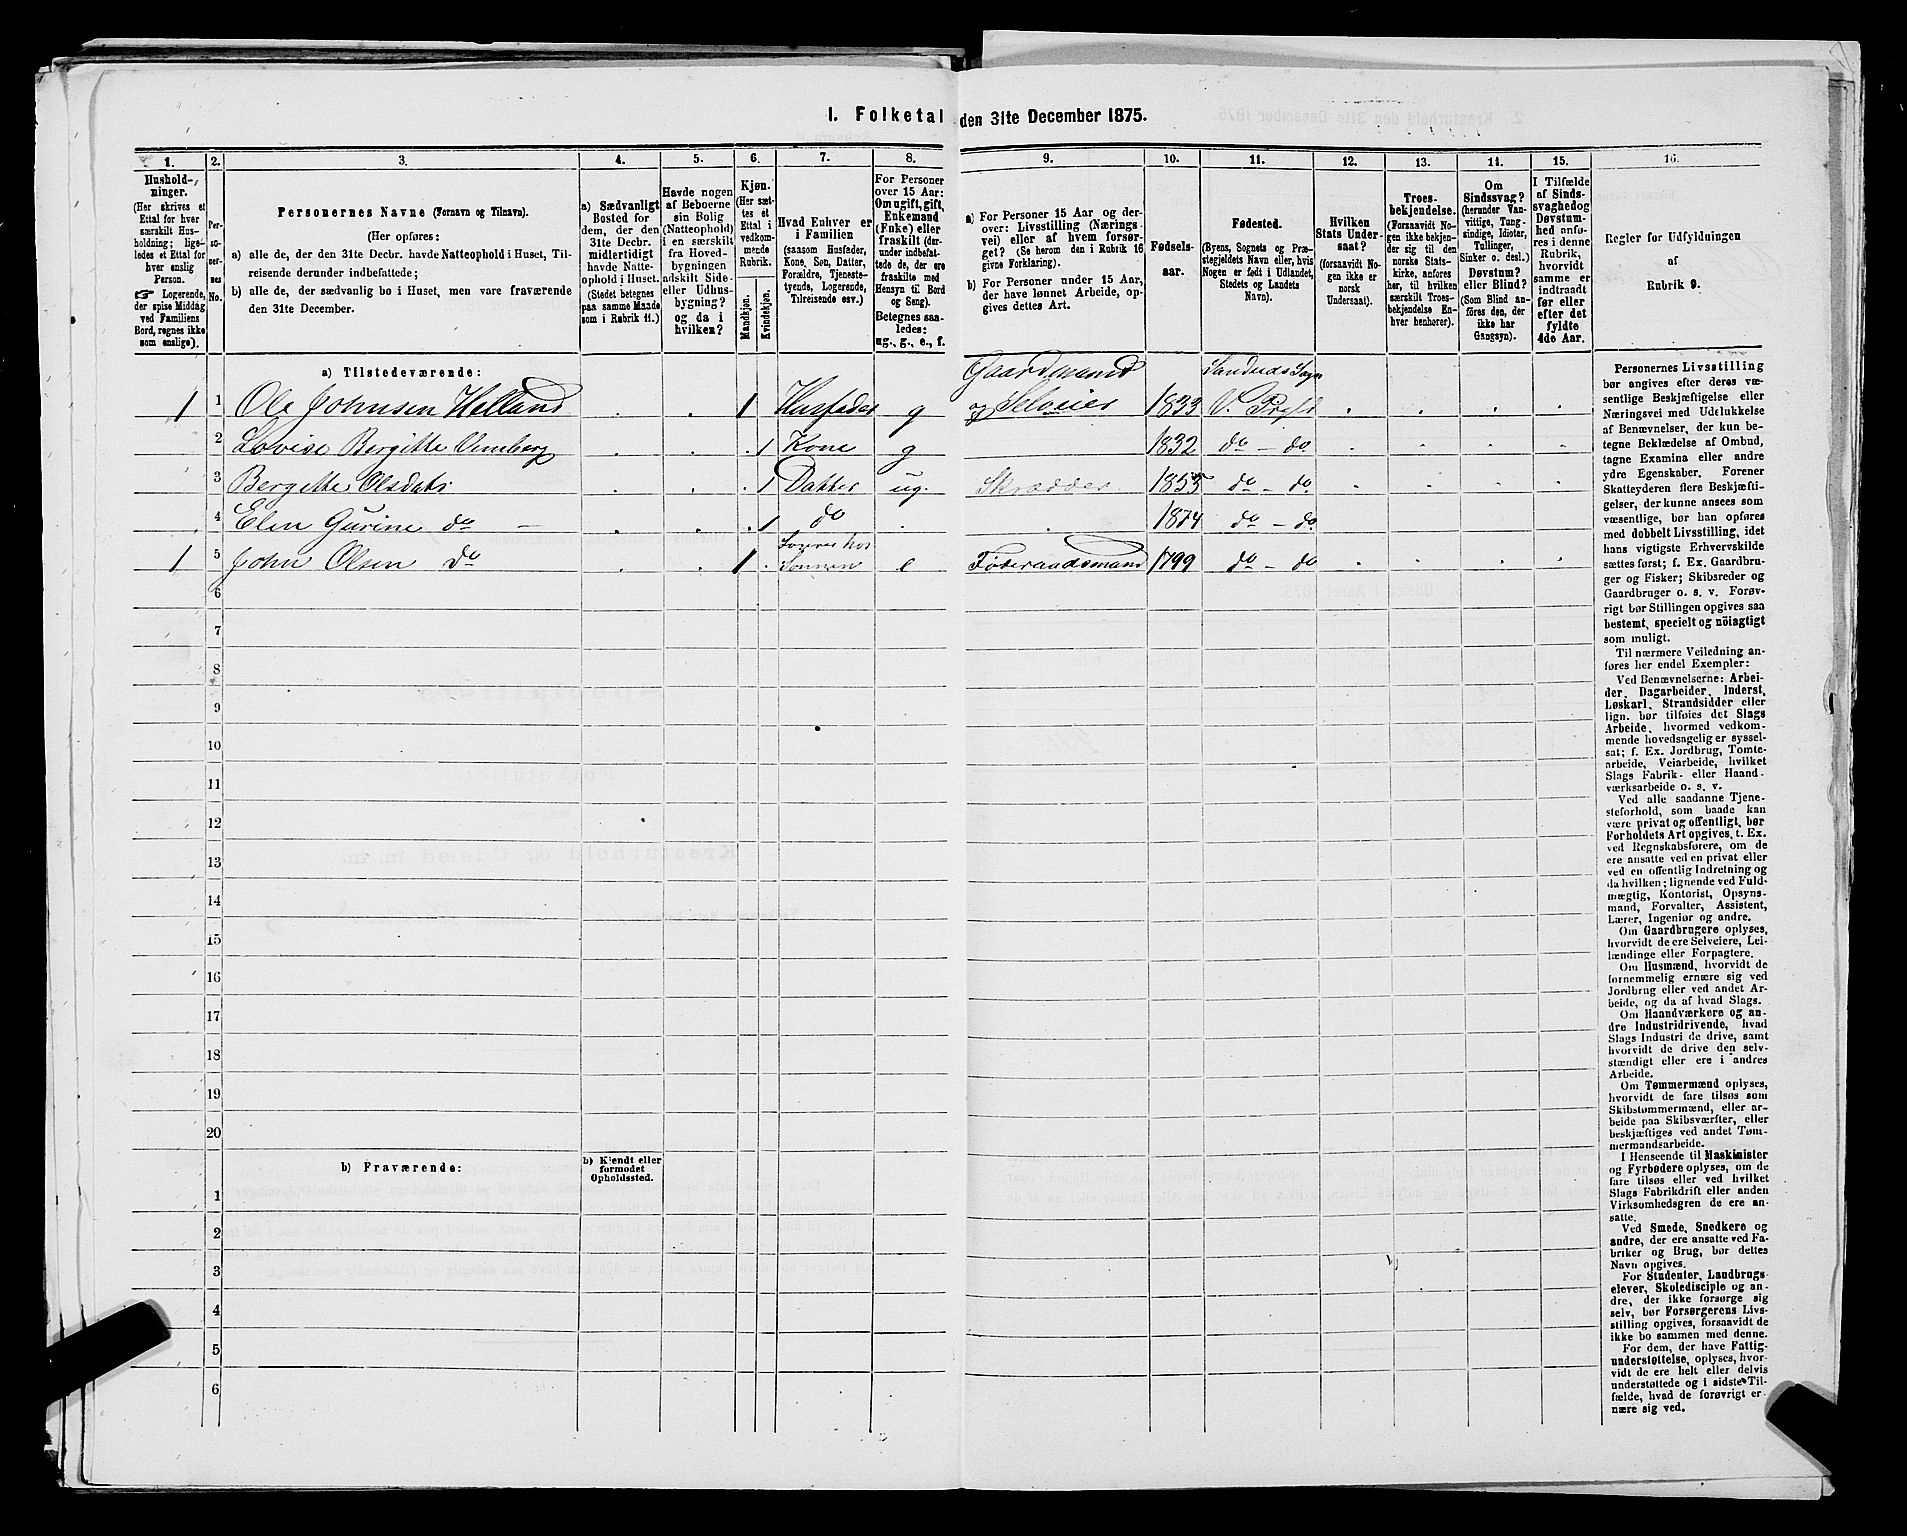 I. Folketal den 31te December 1875.
1. 2. 3. 4. 5. 6. 7. 8. 9. 10. 11. 12. 13. 14. 15. 16.
Hushold-
ninger.
(Her skrives et
Ettal for hver
særskilt Hus-
holdning; lige-
ledes et Ettal for
hver enslig
Person.
☞ Logerende,
der spise Middag
ved Familiens
Bord, regnes ikke
som enslige).
Per-
so-
ner-
nes
No.
Personernes Navne (Fornavn og Tilnavn).
(Her opføres:
a) alle de, der den 31te Decbr. havde Natteophold i Huset, Til-
reisende derunder indbefattede;
b) alle de, der sædvanlig bo i Huset, men vare fraværende
den 31te December.
a) Sædvanligt
Bosted for
dem, der den
31te Decbr.
midlertidigt
havde Natte-
ophold i Huset.
(Stedet betegnes
paa samme Maade
som i Rubrik 11.)
Havde nogen
af Beboerne
sin Bolig
(Natteophold)
i en særskilt
fra Hoved-
bygningen
adskilt Side-
eller Udhus-
bygning?
og da i
hvilken?
Kjøn.
(Her sæt-
tes et
Ettal i
vedkom-
mende
Rubrik.
Mandkjøn.
Kvindekjøn.
Hvad Enhver er
i Familien
(saasom Husfader,
Kone, Søn, Datter,
Forældre, Tjeneste-
tyende, Logerende,
Tilreisende osv.)
For Personer
over 15 Aar:
Om ugift, gift,
Enkemand
(Enke) eller
fraskilt (der-
under indbefat-
tede de, der ere
fraskilte med
Hensyn til Bord
og Seng).
Betegnes saa-
ledes:
ug., g., e., f.
a) For Personer 15 Aar og der-
over: Livsstilling (Nærings-
vei) eller af hvem forsør-
get? (Se herom den i Rubrik 16
givne Forklaring).
b) For Personer under 15 Aar,
der have lønnet Arbeide, op-
gives dettes Art.
Fødsels-
aar.
Fødested.
(Byens, Sognets og Præ-
stegjeldets Navn eller, hvis
Nogen er født i Udlandet,
Stedets og Landets
Navn).
Hvilken
Stats Under-
saat?
(forsaavidt No-
gen ikke er
norsk
Undersaat).
Troes-
bekjendelse.
(Forsaavidt No-
gen ikke bekjen-
der sig til den
norske Stats-
kirke, anføres
her, til hvilken
særskilt Troes-
bekjendelse En-
hver henhører).
Om
Sindssvag?
(herunder Van-
vittige, Tung-
sindige, Idioter,
Tullinger,
Sinker o. desl.)
Døvstum?
eller Blind?
(Som Blind an-
føres den, der
ikke har
Gangsyn).
I Tilfælde
af Sinds-
svaghed og
Døvstum-
hed anfø-
res i denne
Rubrik,
hvorvidt
samme er
indtraadt
før eller
efter det
fyldte
4de Aar.
Regler for Udfyldningen
af
Rubrik 9.
a) Tilstedeværende:
1 1 Ole Johnsen Helland . . 1 Husfader g Gaardmand og Selveier 1833 Sandeids Sogn V. Prgld . . . .
2 Lovise Bergitte . . . 1 Kone g 1832 do - do . . . .
3 Bergitte Olsdatr . . . 1 Datter ug. Skrædder 1855 do - do . . . .
4 Elen Gurine do - . . . 1 do . . 1874 do - do . . . .
1 5 John Olsen do . . 1 . Sønnen e Føderaadsmand 1799 do - do . . . .
6
7
8
9
10
11
12
13
14
15
16
17
18
19
20
b) Fraværende:
b) Kjendt eller
formodet
Opholdssted.
1
2
3
4
5
6
Personernes Livsstilling
bør angives efter deres væ-
sentlige Beskjæftigelse eller
Næringsvei med Udelukkelse
af Benævnelser, der kun be-
tegne Beklædelse af Ombud,
tagne Examina eller andre
ydre Egenskaber. Forener
Skatteyderen flere Beskjæfti-
gelser, der kunne ansees som
væsentlige, bør han opføres
med dobbelt Livsstilling, idet
hans vigtigste Erhvervskilde
sættes først; f. Ex. Gaardbru-
ger og Fisker; Skibsreder og
Gaardbruger o. s. v. Forøv-
rigt bør Stillingen opgives saa
bestemt, specielt og nöiagtigt
som muligt.
Til nærmere Veiledning an-
føres her endel Exempler:
Ved Benævnelserne: Arbei-
der, Dagarbeider, Inderst,
Løskarl, Strandsidder eller
lign. bør tilføies det Slags
Arbeide, hvormed vedkom-
mende hovedsagelig er syssel-
sat; f. Ex. Jordbrug, Tomte-
arbeide, Veiarbeide, hvilket
Slags Fabrik- eller Haand-
værksarbeide o. s. v.
Ved alle saadanne Tjene-
steforhold, som baade kan
være privat og offentligt, bør
Forholdets Art opgives, t. Ex.
ved Regnskabsførere, om de
ere ansatte ved en privat eller
ved en offentlig Indretning og
da hvilken; lignende ved Fuld-
mægtig, Kontorist, Opsyns-
mand, Forvalter, Assistent,
Lærer, Ingeniør og andre.
Om Gaardbrugere oplyses,
hvorvidt de ere Selveiere, Lei-
lændinge eller Forpagtere.
Om Husmænd, hvorvidt de
fornemmelig ernære sig ved
Jordbrug eller ved andet Ar-
beide, og da af hvad Slags.
Om Haandværkere og an-
dre Industridrivende, hvad
Slags Industri de drive, samt
hvorvidt de drive den selv-
stændigt eller ere i andres
Arbeide.
Om Tømmermænd oplyses,
hvorvidt de fare tilsøs som
Skibstømmermænd, eller ar-
beide paa Skibsværfter, eller
beskjæftiges ved andet Tøm-
mermandsarbeide.
I Henseende til Maskinister
og Fyrbødere oplyses, om de
fare tilsøs eller ved hvilket
Slags Fabrikdrift eller anden
Virksomhedsgren de ere an-
satte.
Ved Smede, Snedkere og
andre, der ere ansatte ved Fa-
briker og Brug, bør dettes
Navn opgives.
For Studenter, Landbrugs-
elever, Skoledisciple og an-
dre, der ikke forsørge sig
selv, bør Forsørgerens Livs-
stilling opgives, forsaavidt de
ikke bo sammen med denne.
For dem, der have Fattig-
understøttelse, oplyses, hvor-
vidt de ere helt eller delvis
understøttede og i sidste Til-
fælde, hvad de forøvrigt er-
nære sig ved.